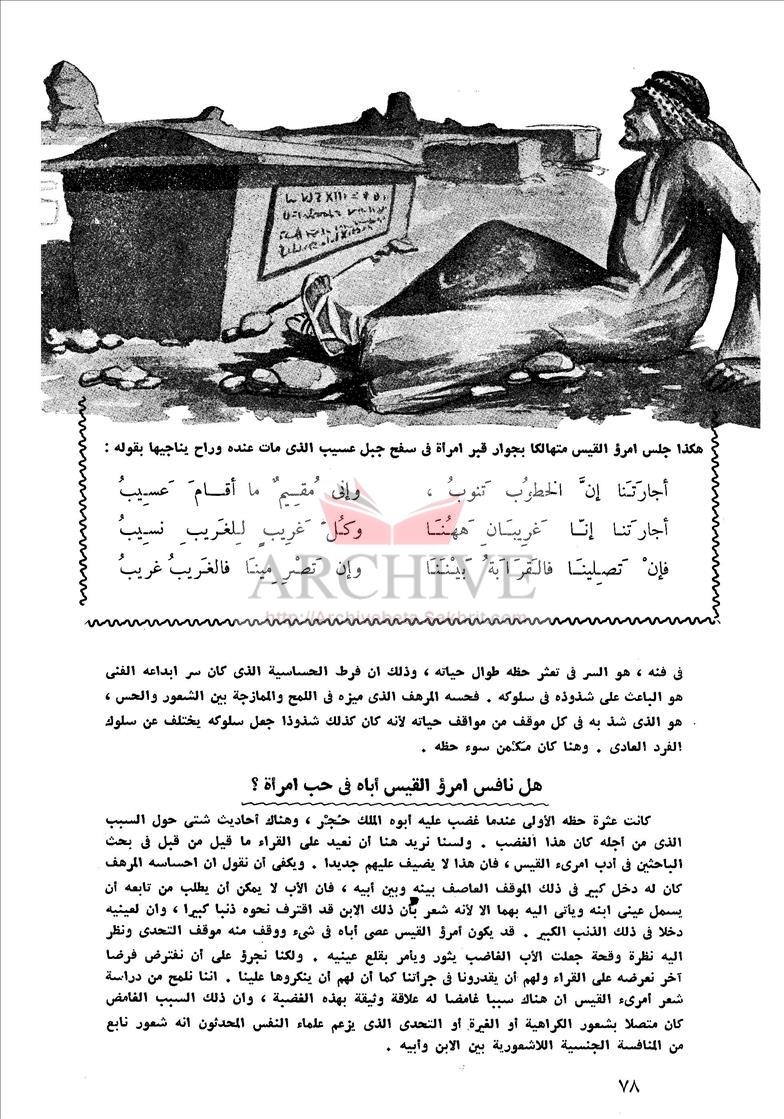 هكذا جلس امرؤ القيس متهالكا بجوار قبر امرأة فى سفح جبل عسيب الذى مات عنده وراح يناجيها بقوله :
أجارَتَنا إنَّ الخطوُب تَنوبُ ، وإنى مُقيمٌ ما أقـامَ عَسيبُ
أجارَتنا إنّـا غَريبَـانِ هَهـُنَـا وكـُلّ غَريبٍ لِلغَريبِ نسيبُ
فإنْ تَصلينَـا فالقَرَابَةُ بَيْـنَـنَـا وإن تَصْرِمينَـا فالغَريبُ غريبُ
ARCHIVE
http://Archivebeta.Sakhrit.com
فى فنه ، هو السر فى تعثر حظه طوال حياته ، وذلك ان فرط الحساسية الذى كان سر ابداعه الفنى
هو الباعث على شذوذه فى سلوكه . فحسه المرهف الذى ميزه فى اللمح والممازجة بين الشعور والحس ،
هو الذى شذ به فى كل موقف من مواقف حياته لأنه كان كذلك شذوذا جعل سلوكه يختلف عن سلوك
الفرد العادى . وهنا كان مكمن سوء حظه .
هل نافس امرؤ القيس أباه فى حب امرأة ؟
كانت عثرة حظه الأولى عندما غضب عليه أبوه الملك حُجْر ، وهناك أحاديث شتى حول السبب
الذى من أجله كان هذا الغضب . ولسنا نريد هنا أن نعيد على القراء ما قيل من قبل فى بحث
الباحثين فى أدب امرىء القيس ، فان هذا لا يضيف عليهم جديدا . ويكفى أن نقول ان احساسه المرهف
كان له دخل كبير فى ذلك الموقف العاصف بينه وبين أبيه ، فان الأب لا يمكن أن يطلب من تابعه أن
يسمل عينى ابنه ويأتى اليه بهما الا لأنه شعر بأن ذلك الابن قد اقترف نحوه ذنبا كبيرا ، وان لعينيه
دخلا فى ذلك الذنب الكبير . قد يكون أمرؤ القيس عصى أباه فى شىء ووقف منه موقف التحدى ونظر
اليه نظرة وقحة جعلت الأب الغاضب يثور ويأمر بقلع عينيه . ولكنا نجرؤ على أن نفترض فرضا
آخر نعرضه على القراء ولهم أن يقدرونا فى جرأتنا كما أن لهم أن ينكروها علينا . اننا نلمح من دراسة
شعر أمرىء القيس ان هناك سببا غامضا له علاقة وثيقة بهذه الغضبة ، وان ذلك السبب الغامض
كان متصلا بشعور الكراهية أو الغيرة أو التحدى الذى يزعم علماء النفس المحدثون انه شعور نابع
من المنافسة الجنسية اللاشعورية بين الابن وأبيه .
٧٨